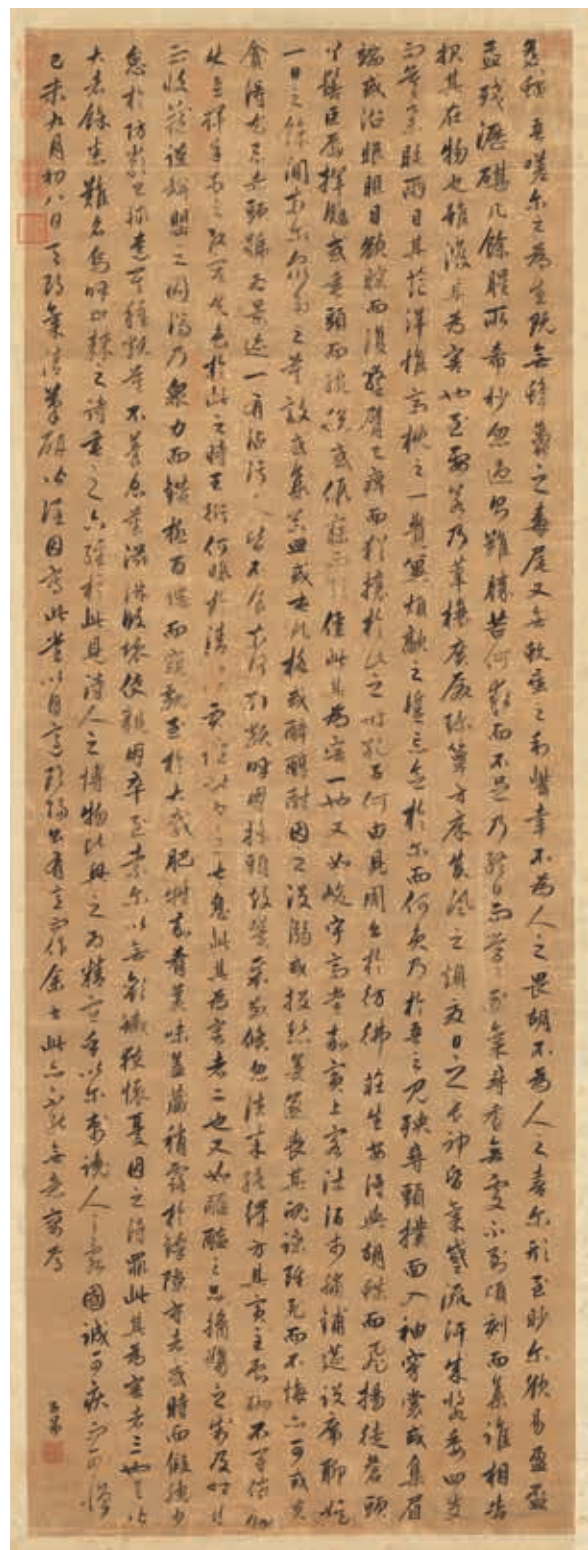 蒼蠅吾嗟尔之為生既無蜂蠆之毒尾又無蚊虻之利觜幸不為人之畏胡不為人之喜尔形至眇尔欲易盈盃
盂殘瀝砧几餘腥所希杪忽過則難勝苦何求而不足乃終日而營營逐氣尋香無處不到頃刻而集誰相告
報其在物也雖微其為害也至要若乃華榱廣廈珍簟方床炎風之燠夏日之長神昏氣蹙流汗成漿委四支
而莫舉眊兩目其茫洋惟高枕之一覺冀煩歊之暫忘念於尔而何負乃於吾之見殃尋頭撲面入袖穿裳或集眉
端或沿眼眶目欲瞑而復警臂已痺而猶攘於此之時孔子何由見周公於彷彿莊生安得與胡蝶而飛揚徒蒼頭
丫髻巨扇揮颺或垂頭而腕脫或假寐而僵此其為害一也又如峻宇高堂嘉賓上客沽酒市脯鋪筵設席聊娛
一日之餘閒奈尔眾多之莫敵或集器皿或屯几格或醉醇酎因之沒溺或投熱羹遂喪其魄諒雖死而不悔亦可戒夫
貪得尤忌赤頭號為景迹一有沾污人皆不食奈何引類呼朋搖頭鼓翼聚散倏忽往來絡繹方其賓主獻酬不冠儼飾
使吾揮手頓足改容失色於此之時王衍何暇於清談賈誼堪為之太息此其為害者二也又如醯醢之品醬臡之制及時月
而收藏謹缾罌之固濟乃眾力而鑽極百端而窺覬至於大胾肥牲嘉肴美味蓋藏稍露於罅隙守者或時而假寐少
怠於防嚴已輒遺其種類莫不養息蕃滋淋漓敗壞使親朋卒至索尔以無歡臧獲懷憂因之得罪此其為害者三也是皆
大者餘悉難名嗚呼止棘之詩垂之六經於此見詩人之博物比興之為精宜乎以尔刺讒人之亂國誠可疾而可憎
己未九月初八日天朗氣清筆硯